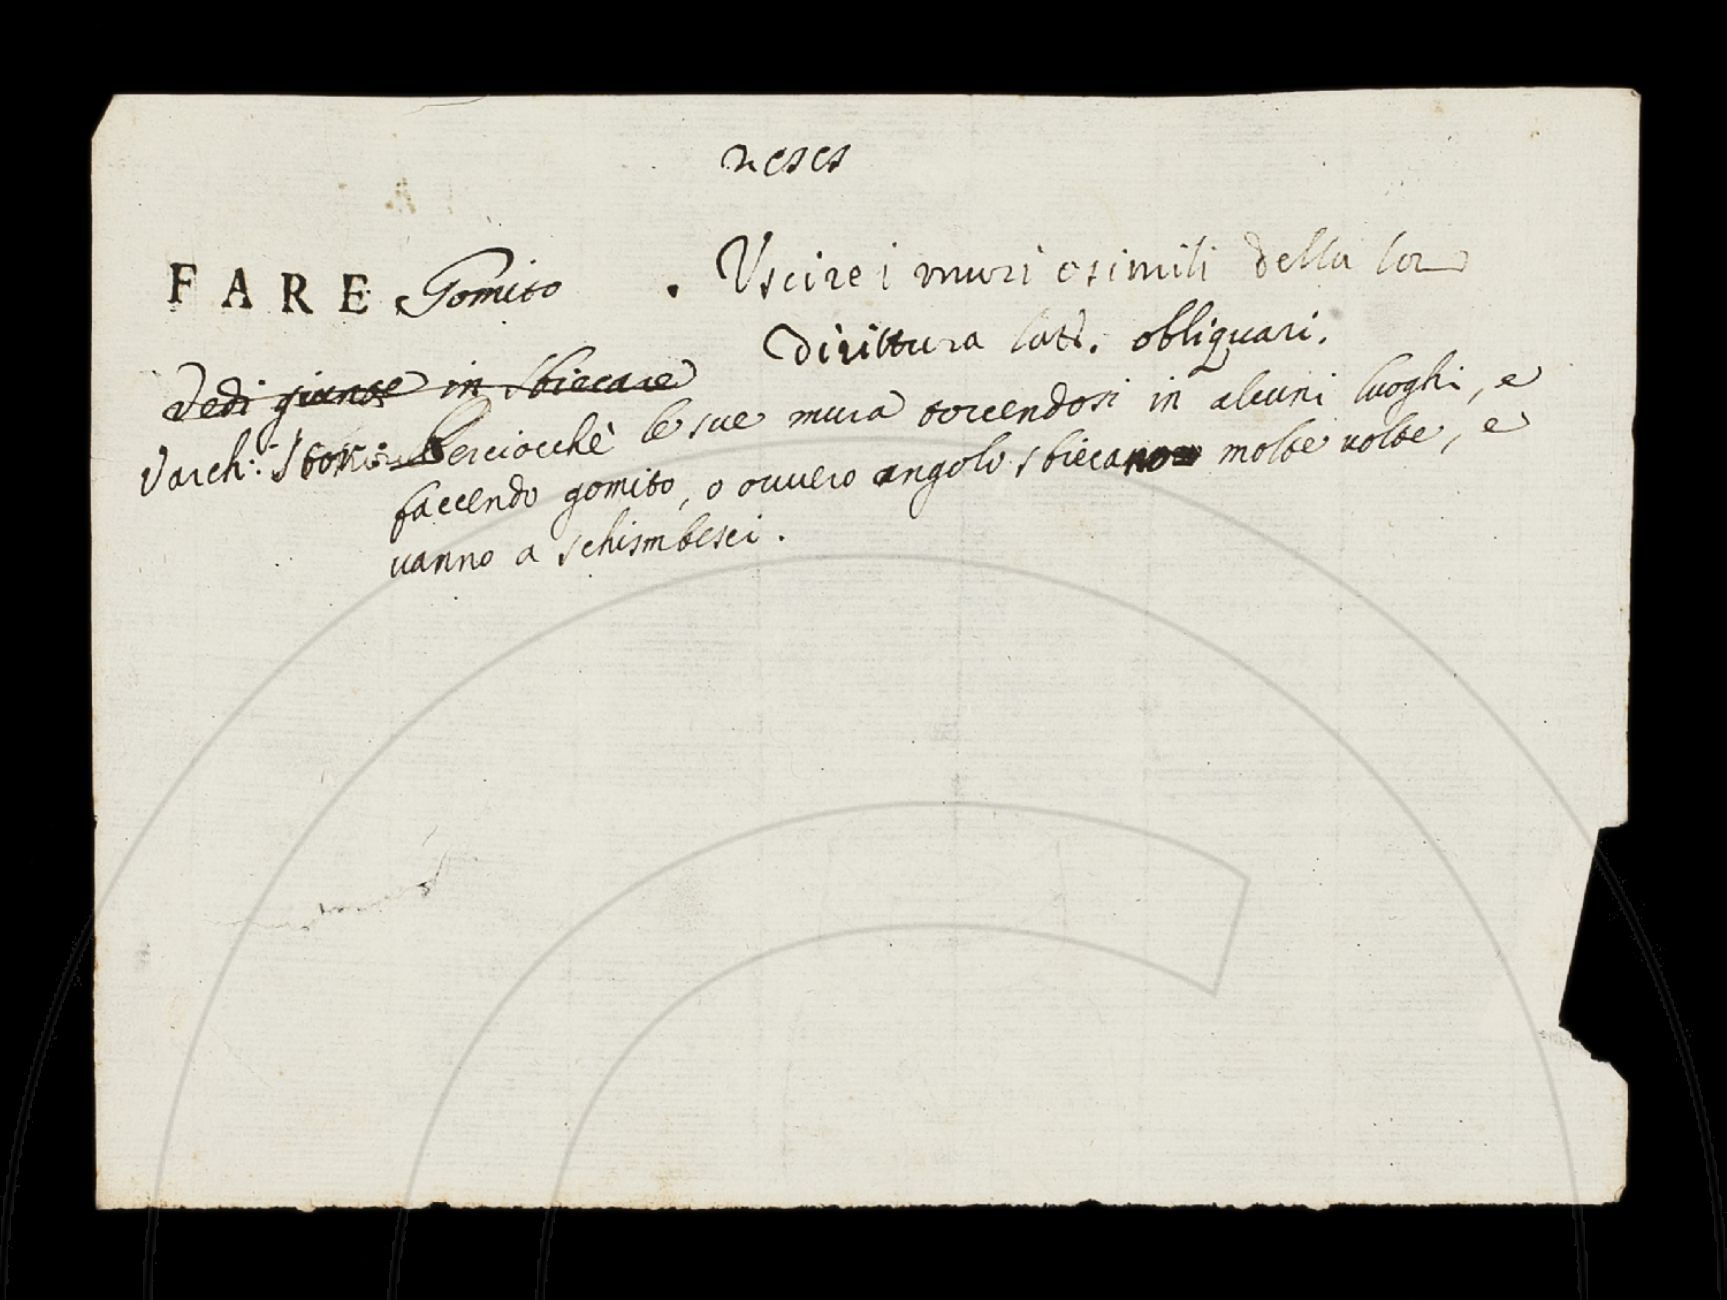 neses
FARE Gomito . Uscire i muri o simili della lor
dirittura latì. obliquari.
Vedi giunte in sbiecare
Varch: Stor: Perciocchè le sue mura torcendosi in alcuni luoghi, e
faccendo gomito, o ovvero angolo sbiecano molte volte, e
vanno a schimbesci.